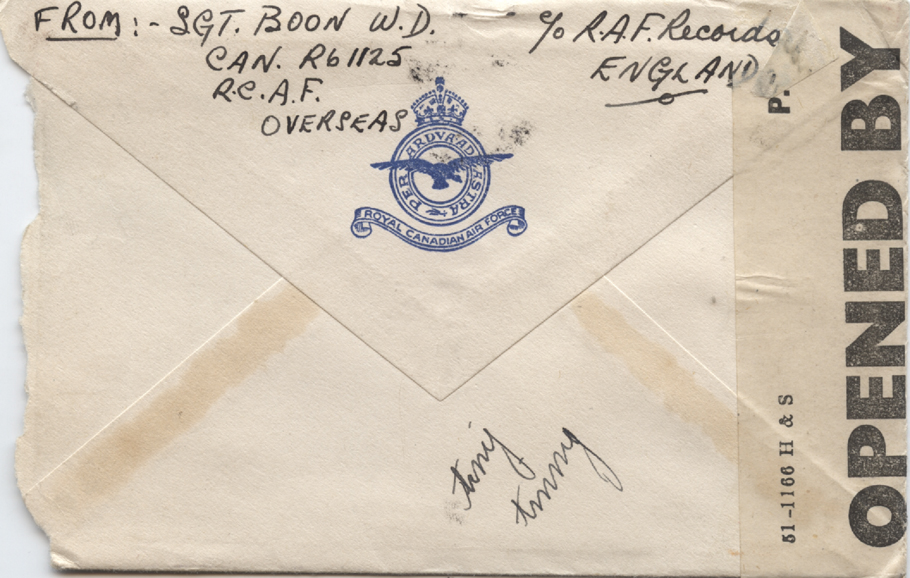 FROM:- SGT. BOON W.D.
CAN. R61125
R.C.A.F.
OVERSEAS
c/o R.A.F. Records
ENGLAND
PER ARDVA AD ASTRA
ROYAL CANADIAN AIR FORCE
tiny
P.
51-1166 H & S
OPENED BY